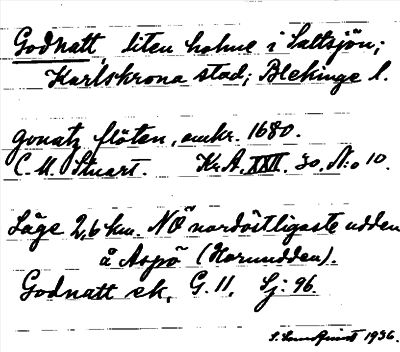 Godnatt, liten holme i Saltsjön;
Karlskrona stad; Blekinge l.
gonatz flöten, omkr. 1680.
C. M. Stuart. Kr.A. XXII. 30. N:o 10.
Läge 2,6 km. NÖ nordöstligaste udden
å Aspö (Horundden).
Godnatt ek. G. 11. Sj: 96.
1936.